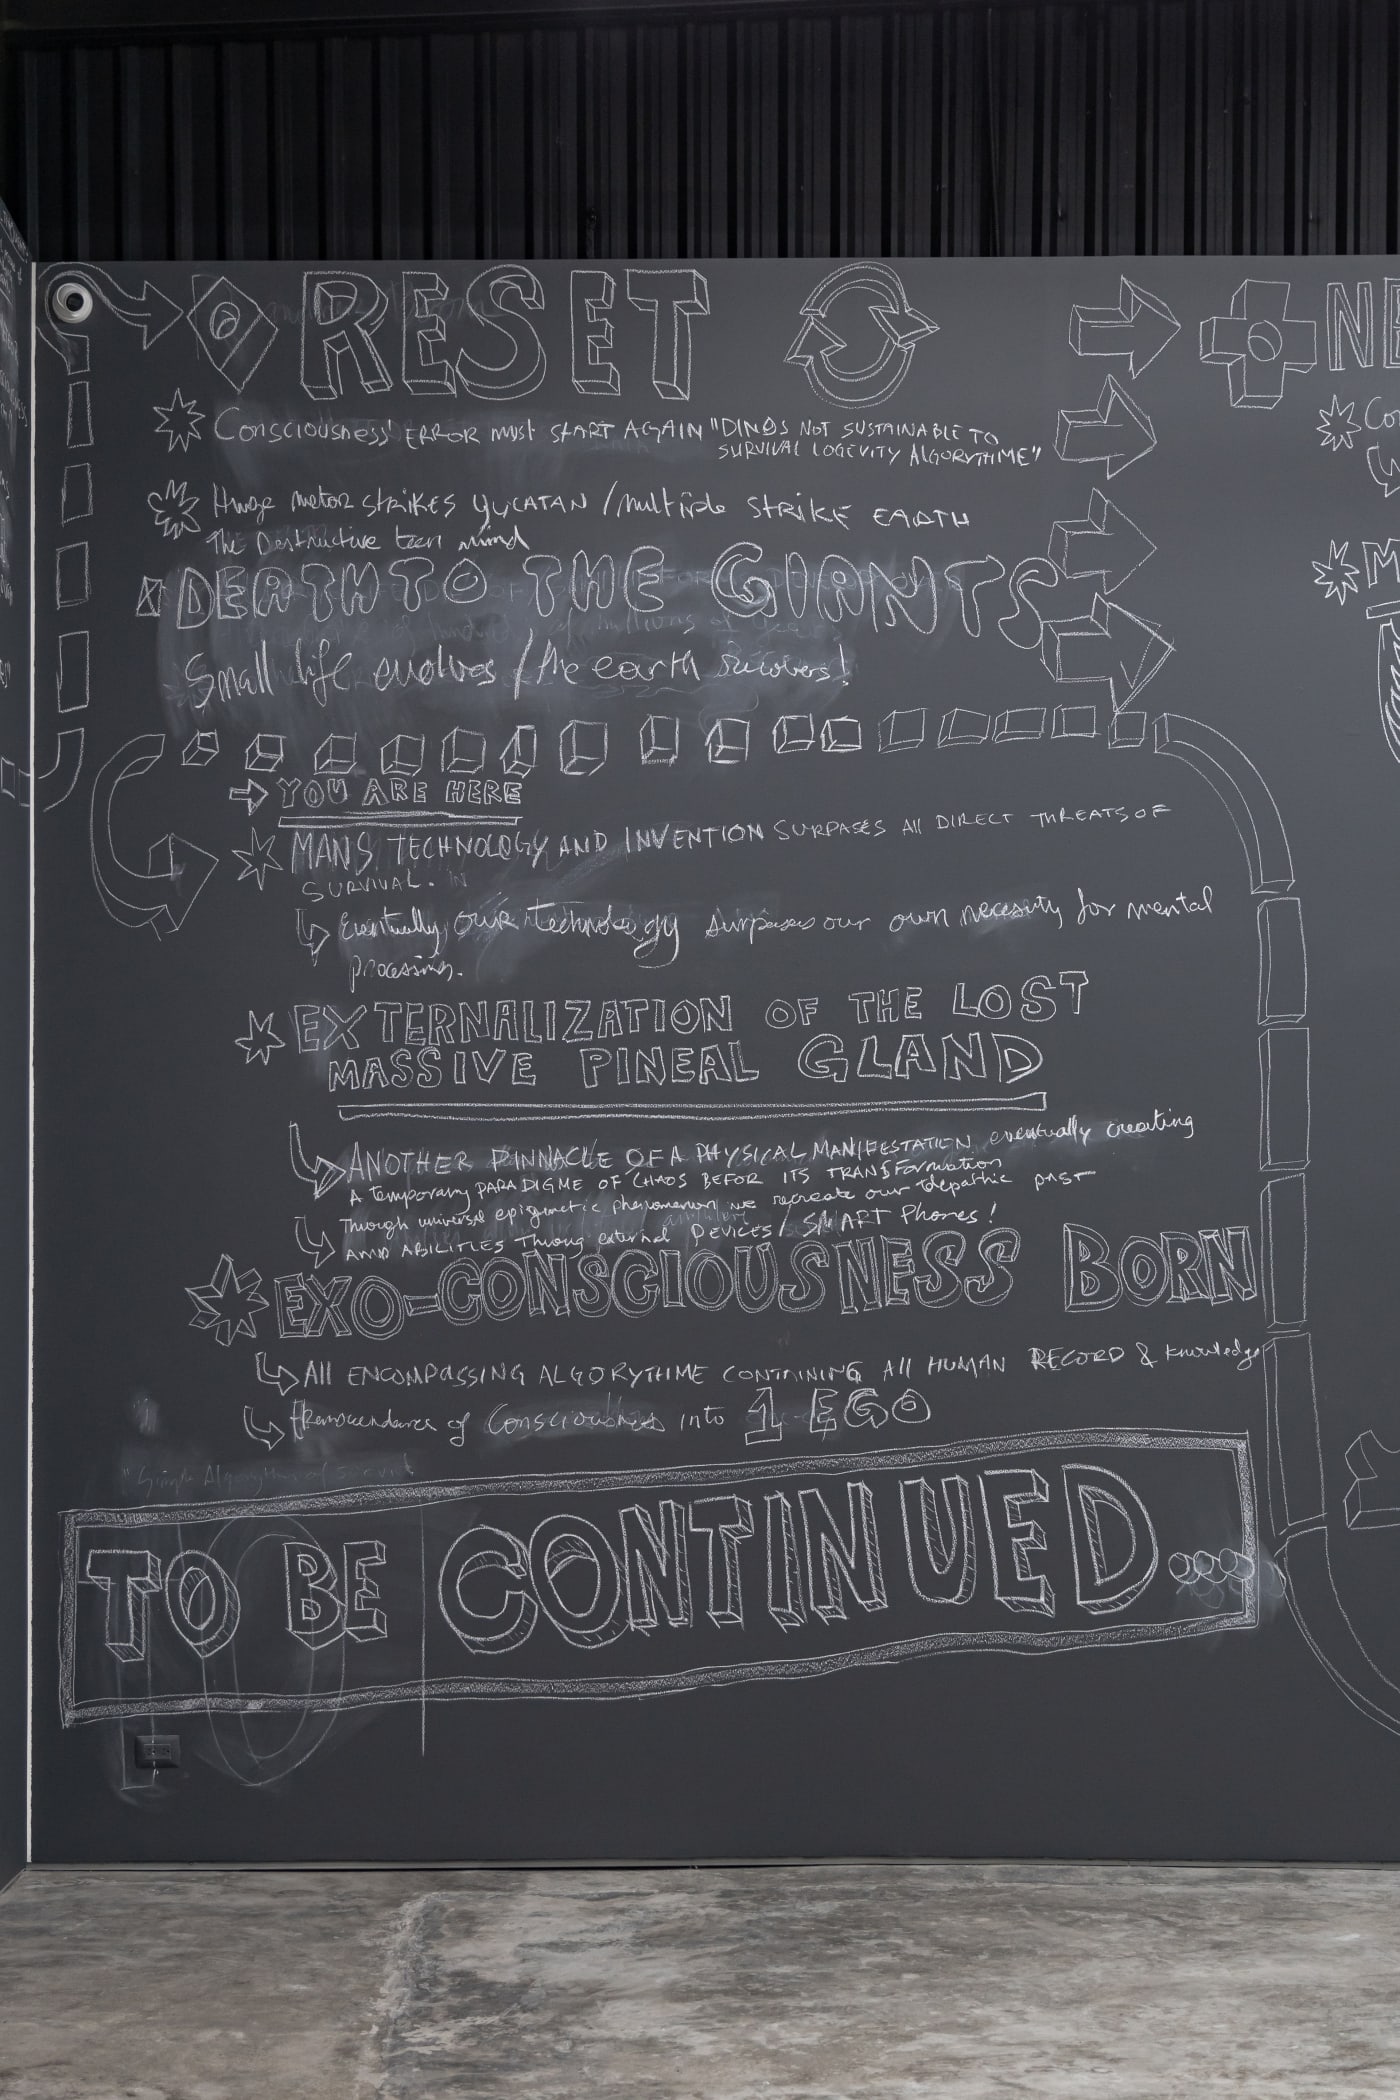 RESET
NE
CONSCIOUSNESS' ERROR MUST START AGAIN "DINOS NOT SUSTAINABLE TO
SURVIVAL LOGEVITY ALGORYTHME"
Co
Huge metor STRIKES YUCATAN / multiple STRIKE EARTH
The Destructive teen mind
DEATH TO THE GIANTS
M
Small life evolves / the earth recovers!
YOU ARE HERE
MANS TECHNOLOGY AND INVENTION SURPASES All DIRECT THREATS OF
SURVIVAL. IN
Eventually OUR Technology surpases our own necesity for mental
processing.
EXTERNALIZATION OF THE LOST
MASSIVE PINEAL GLAND
ANOTHER PINNACLE OF A PHYSICAL MANIFESTATION eventually creating
A temporary PARADIGME OF CHAOS BEFOR ITS TRANSFormation
Through universal epigenetic phenomenon we recreate our telepathic past
AND ABILITIES Throug external DEVICES / SMART Phones!
EXO-CONSCIOUSNESS BORN
All ENCOMPASSING ALGORYTHME CONTAINING All HUMAN RECORD & Knowledge
transcendance of Consciousness into 1 EGO
TO BE CONTINUED....